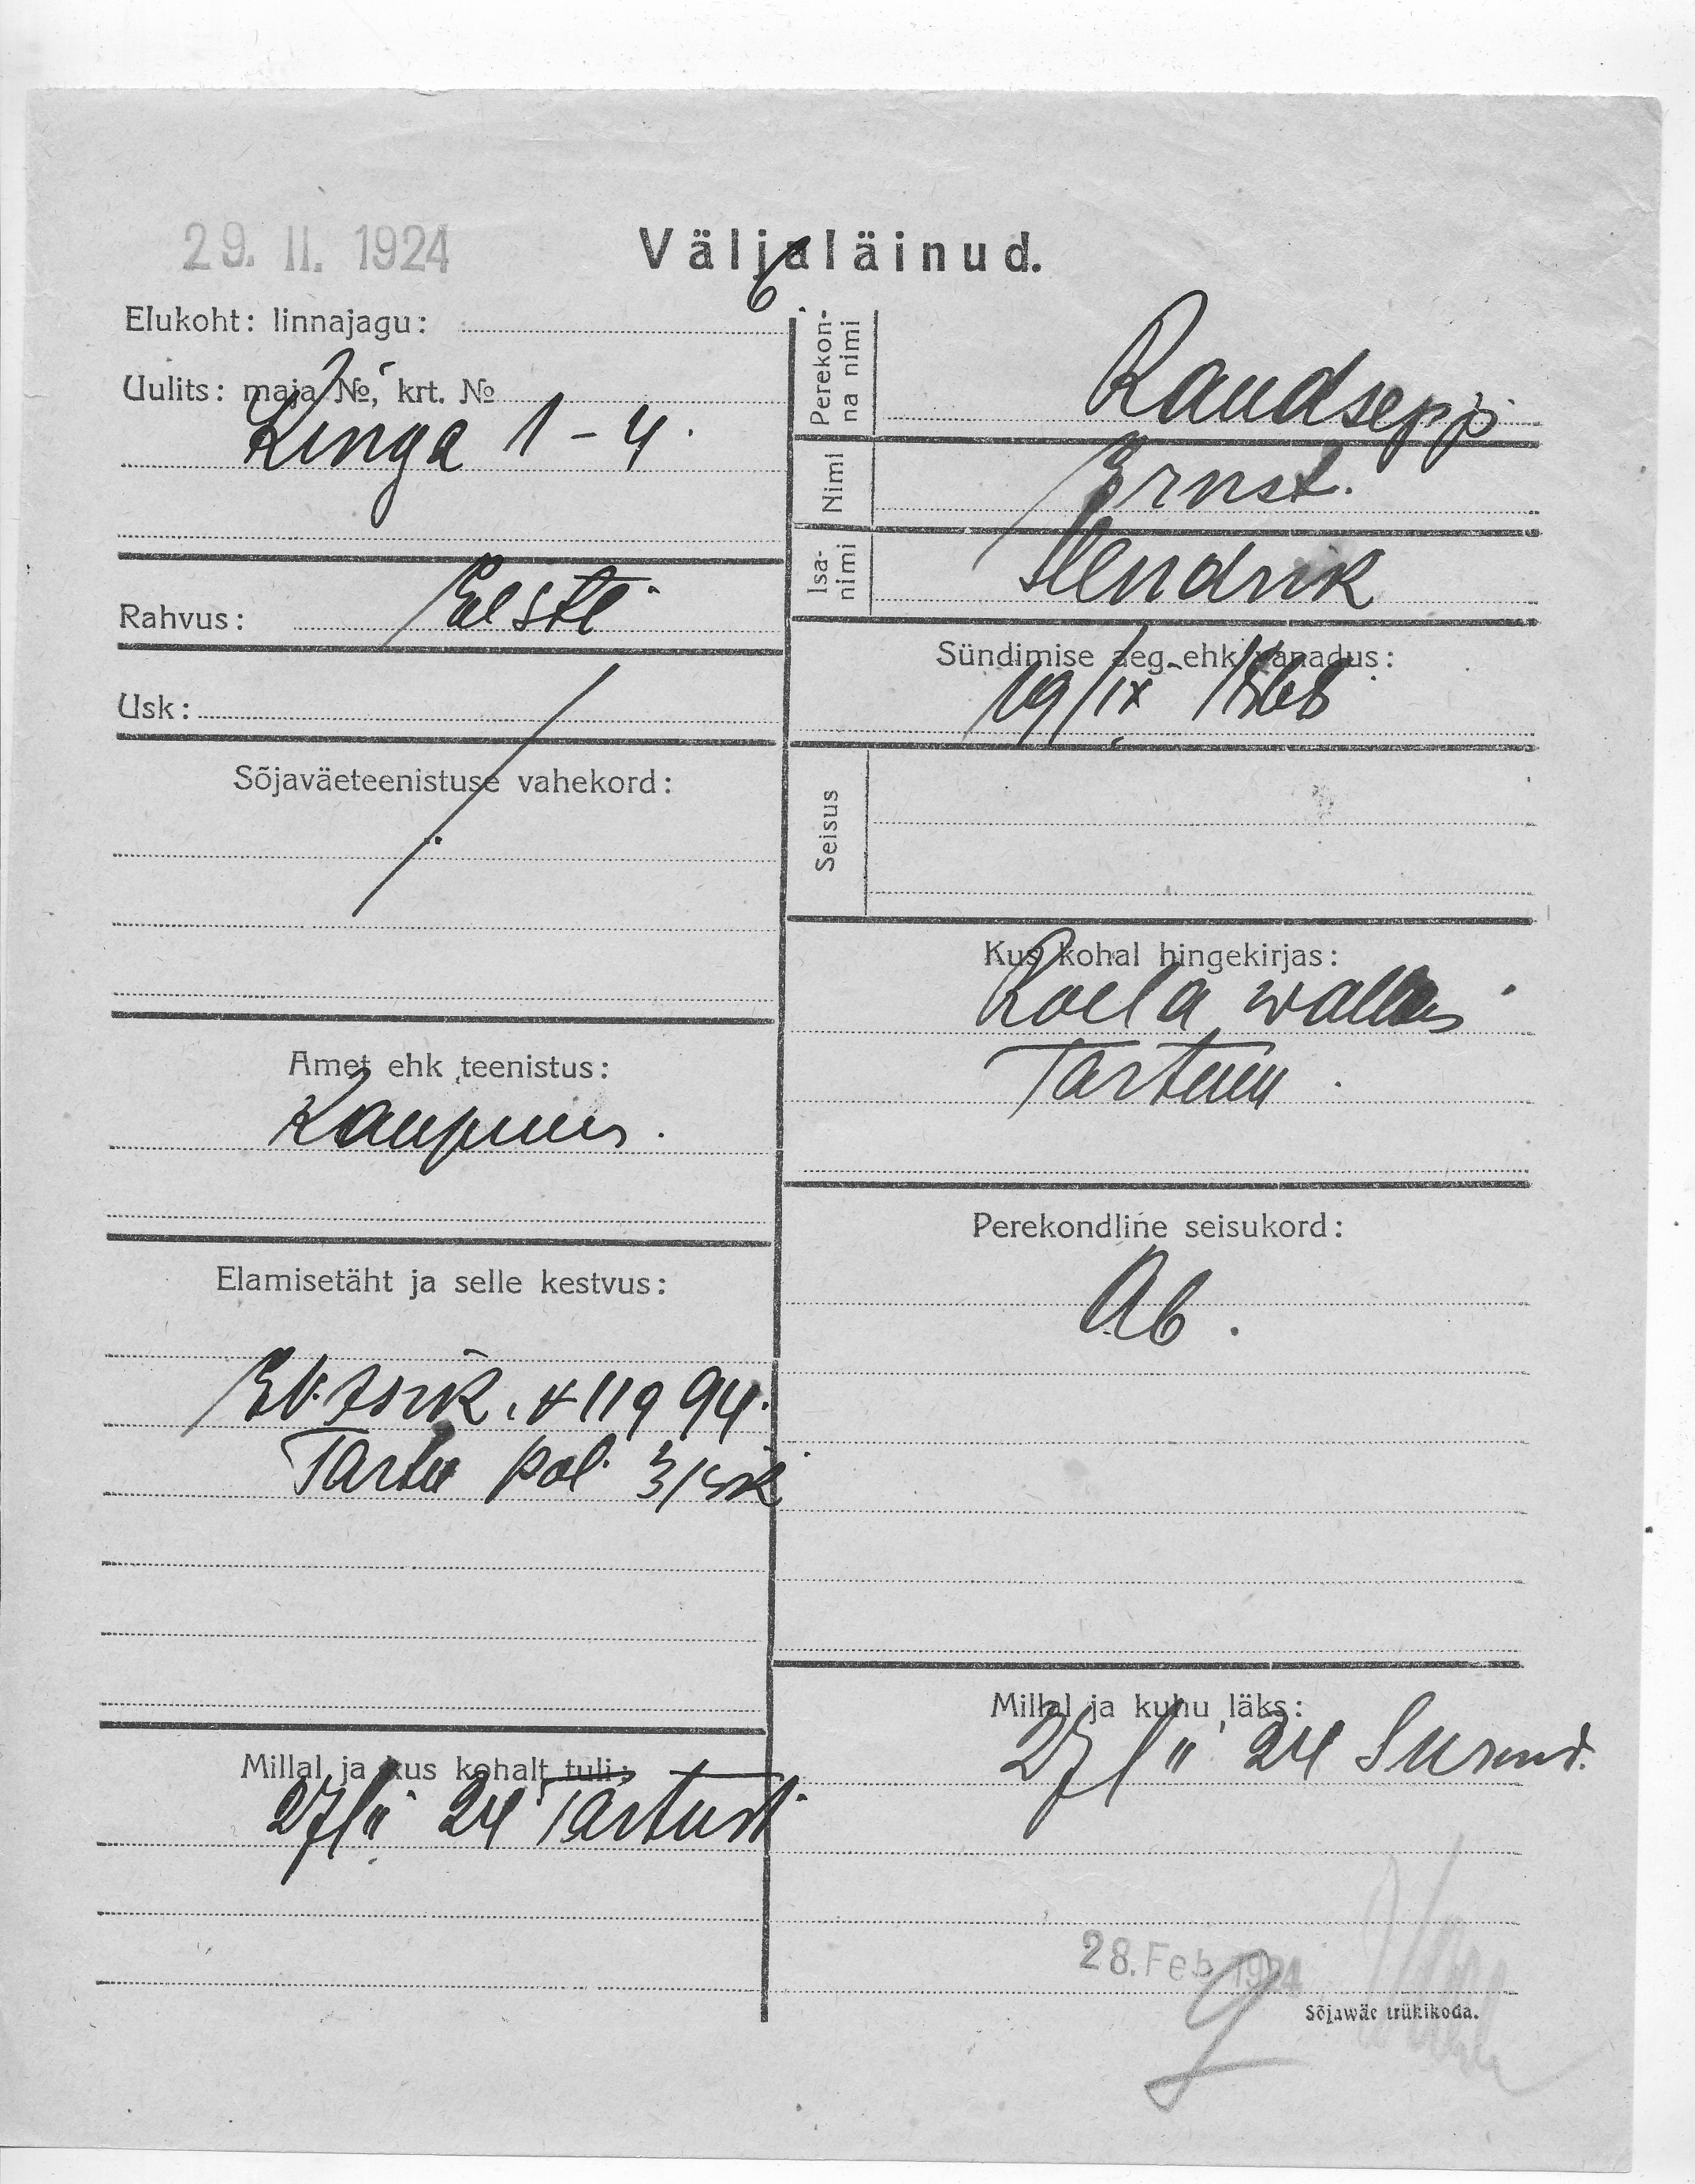 29. II. 1924
Väljaläinud.
Elukoht: linnajagu:
6
Uulits: maja №, krt. №
Kinga 1-4.
Rahvus: Eesti
Usk:
Sõjaväeteenistuse vahekord:
Amet ehk teenistus:
Kaupmees.
Elamisetäht ja selle kestvus:
119 94.
Tartu pol. 3/jsk
Millal ja kus kohalt tuli:
27/II 24 Tartust
Perekonna nimi
Raudsepp
Nimi
Ernst.
Isanimi
Hendrik
Sündimise aeg ehk vanadus:
19/IX 1868
Seisus
Kus kohal hingekirjas:
Roela wallas
Tartum
Perekondline seisukord:
Ab.
Millal ja kuhu läks:
27/II 24 Surnud.
28. Feb. 1924
Sõjawäe trükikoda.